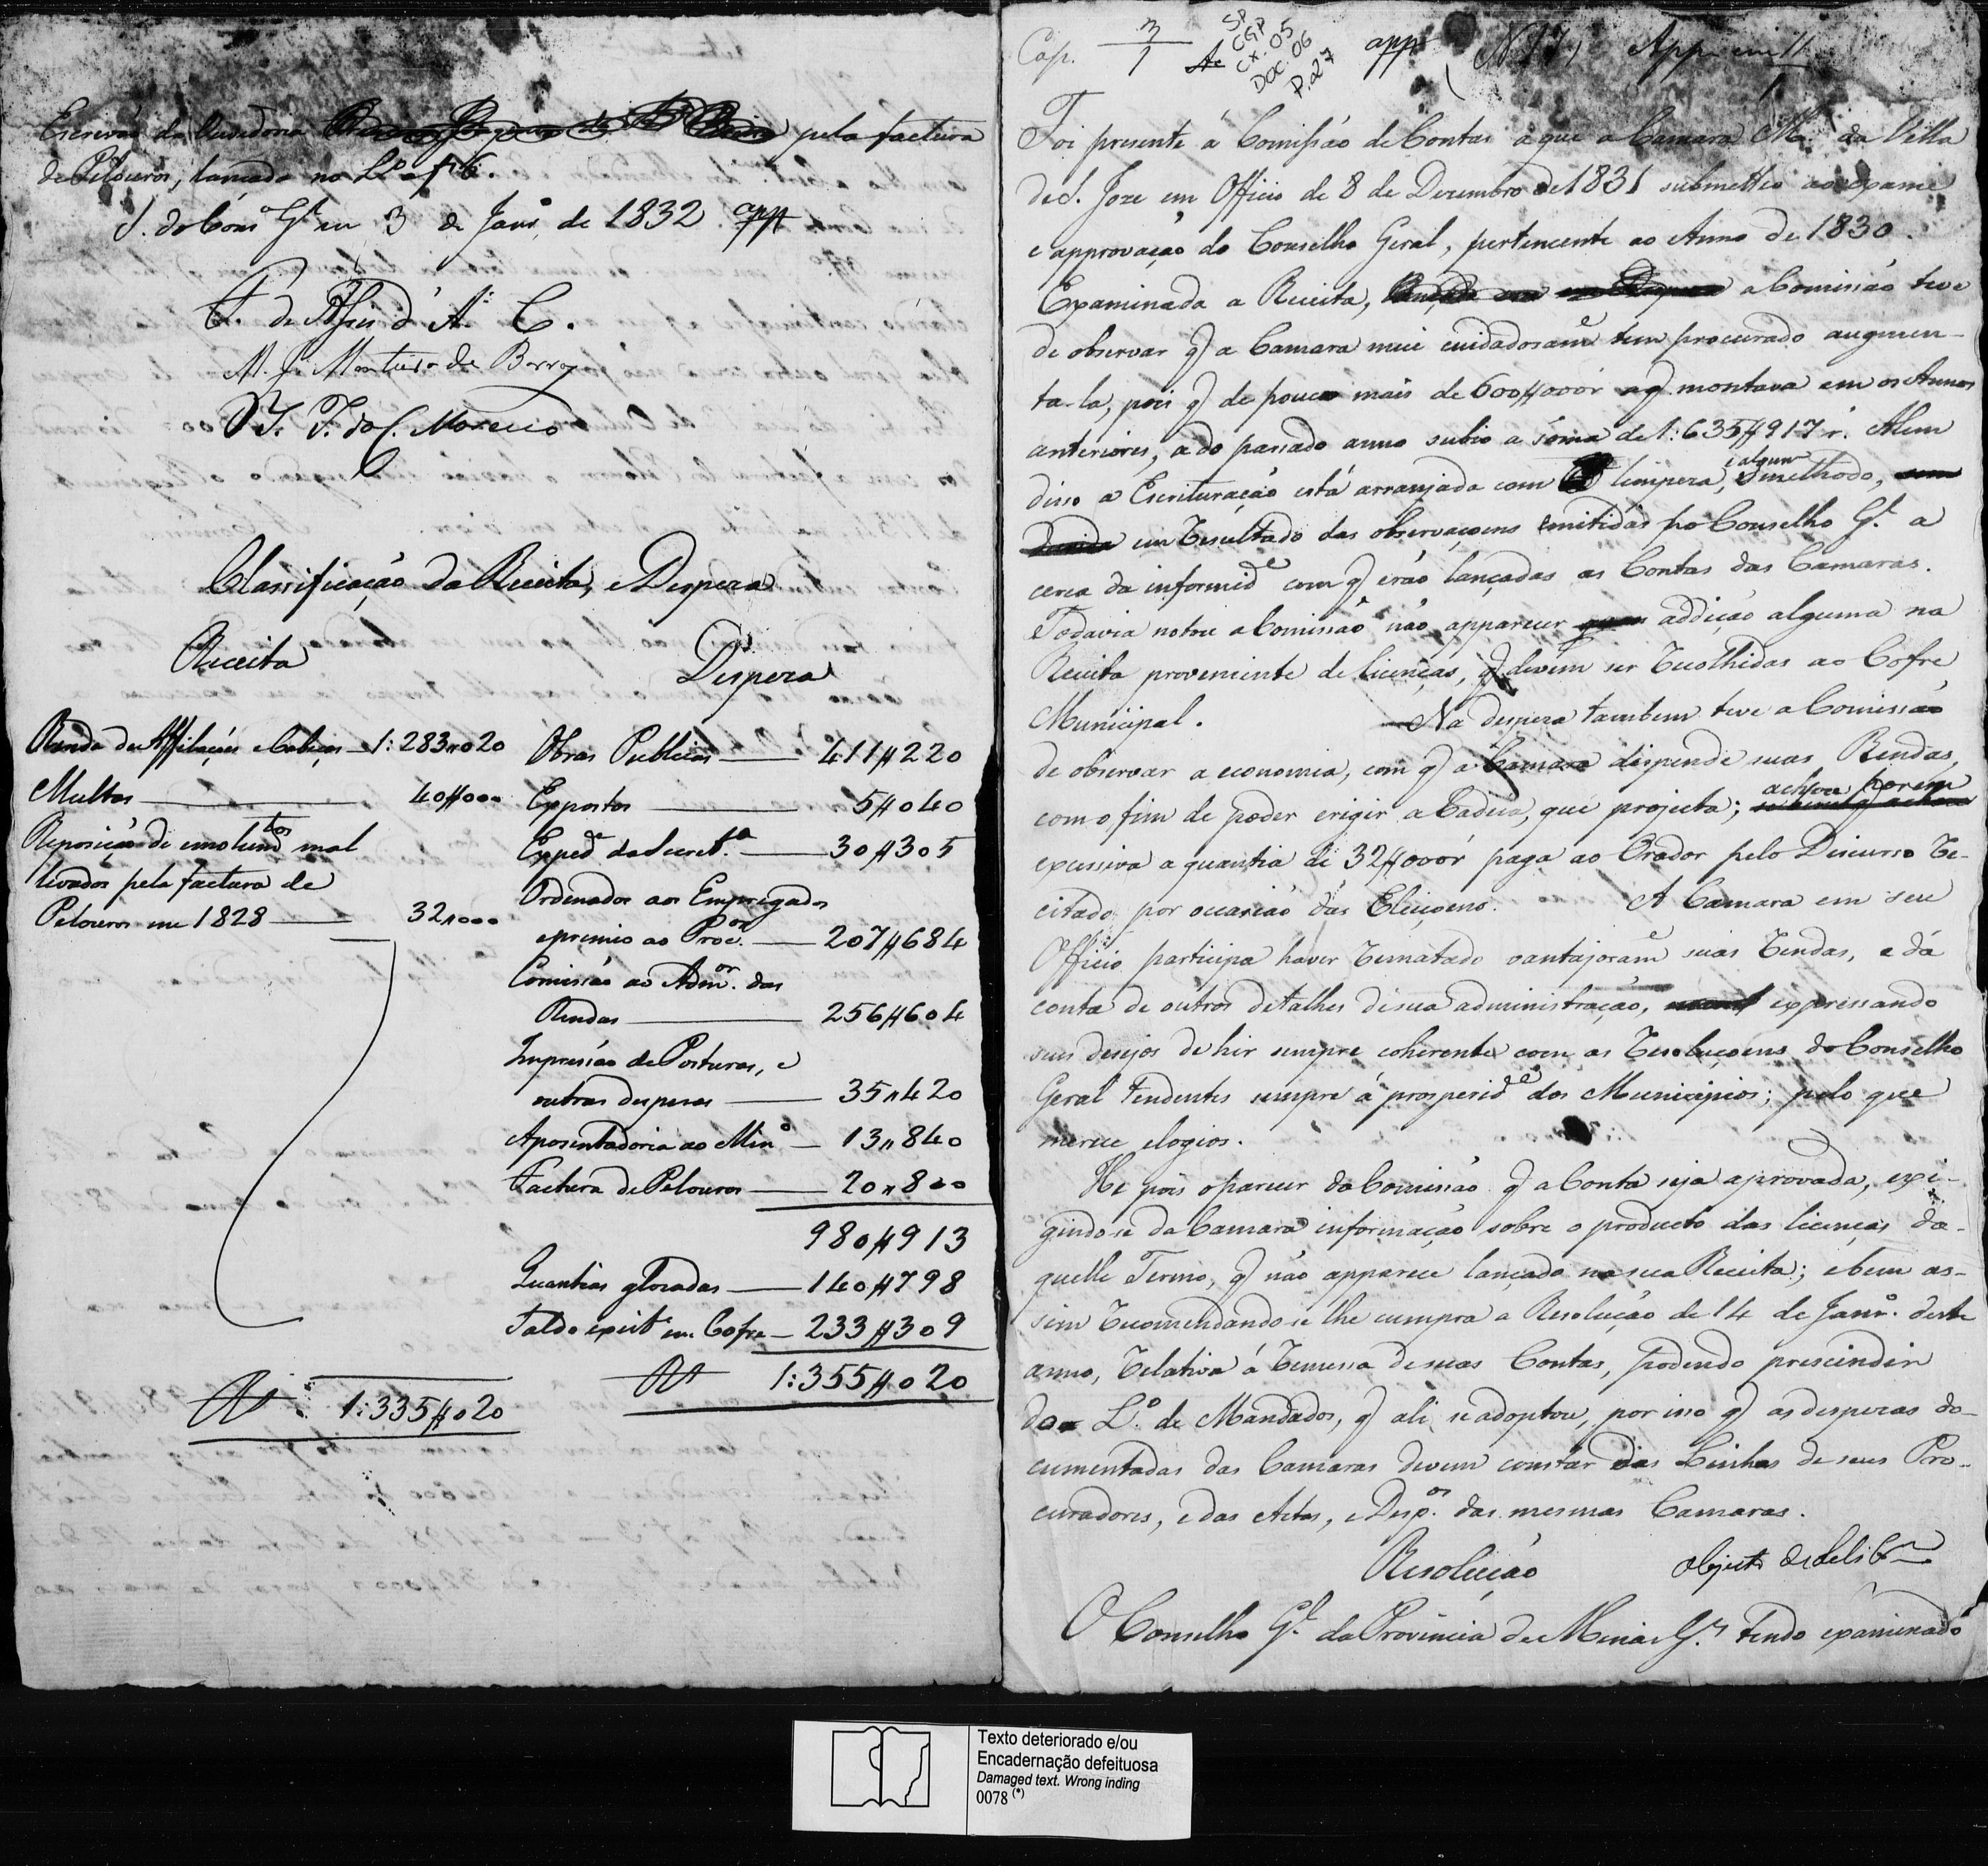 Escrivão da Ouvidoria pela factura
de Pelouros, lançada no Lº a f 6.
S. do Cons.º G.l em 3 de Janrº de 1832 app
F. de Assis d'A. C.
M. J. Monteiro de Barros
J. da C. Moreira
Classificação da Receita, e Despeza
Receita
Renda de Affilações e Cabeças — 1:283„020
Multas — 40#000
Reposição de emolumtos mal
levados pela factura de
Pelouros em 1828 — 32„000
1:335#020
Despeza
Obras Publicas — 411#220
Expostos — 5#040
Expede da Secretª — 30#305
Ordenados aos Empregados
e premio ao Procor — 207#684
Comissão ao Admor. das
Rendas — 256#604
Impressão de Posturas, e
outras despezas — 35„420
Aposentadoria ao Minº — 13„840
Factura de Pelouros — 20„800
980#913
Quantias glozadas — 140#798
Saldo existe em Cofre — 233#309
1:355#020
Cap. 3/1 app (N 17) App em 11
SP
CGP
CX. 05
DOC. 06
P.27
Foi presente á Comissão de Contas a que a Camara M. da Villa
de S. Joze em Officio de 8 de Dezembro de 1831 submetteo ao exame
e approvação do Conselho Geral, pertencente ao Anno de 1830.
Examinada a Receita, a Comissão teve
de observar q a Camara mui cuidadosame tem procurado augmen-
ta-la, pois q de pouco mais de 600#000r a q montava em os Annos
anteriores, a do passado anno subio a soma de 1:635#917r. Alem
disso a Escrituração está arranjada com limpeza, e algum methodo,
em resultado das observaçoens emitidas po Conselho G.l a
cerca da informide com q erão lançadas as Contas das Camaras.
Todavia notou a Comissão não apparecer addição alguma na
Receita proveniente de licenças, q devem ser recolhidas ao Cofre
Municipal. Na despeza tambem teve a Comissão
de observar a economia, com q a Camara dispende suas Rendas,
com o fim de poder erigir a Cadeia, que projecta; achou porém
excessiva a quantia de 32#000r paga ao Orador pelo Discurso re-
citado por occasião das Eleiçoens. A Camara em seu
Officio participa haver rematado vantajozame suas rendas, e dá
conta de outros detalhes de sua administração, expressando
seus desejos de hir sempre coherente com as resoluçoens do Conselho
Geral tendentes sempre á prosperide dos Municipios; pelo que
merece elogios.
He pois o parecer da Comissão q a Conta seja aprovada, exi-
gindo-se da Camara informação sobre o producto das licenças da-
quelle Termo, q não apparece lançado na sua Receita; e bem as-
sim recomendando-se lhe cumpra a Resolução de 14 de Janrº. deste
anno, relativa á remessa de suas Contas, podendo prescindir
do Lº. de Mandados, q ali se adoptou, por isso q as despezas do-
cumentadas das Camaras devem constar das Linhas de seus Pro-
curadores, e das Actas, e Despos. das mesmas Camaras.
Resolução objecto de delibm
O Conselho G.l da Provincia de Minas G.s tendo examinado
Texto deteriorado e/ou
Encadernação defeituosa
Damaged text. Wrong inding
0078 (*)